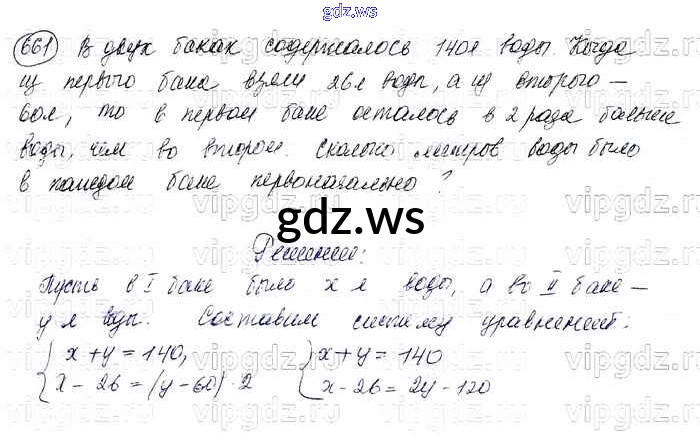 gdz.ws
661 В двух баках содержалось 140л воды. Когда
из первого бака взяли 26л воды, а из второго –
60л, то в первом баке осталось в 2 раза больше
воды, чем во втором. Сколько литров воды было
в каждом баке первоначально?
gdz.ws
Решение:
Пусть в I баке было х л воды, а во II баке –
у л воды. Составим систему уравнений:
{ x + y = 140, { x + y = 140
{ x - 26 = (y - 60) · 2 { x - 26 = 2y - 120
vipgdz.ws